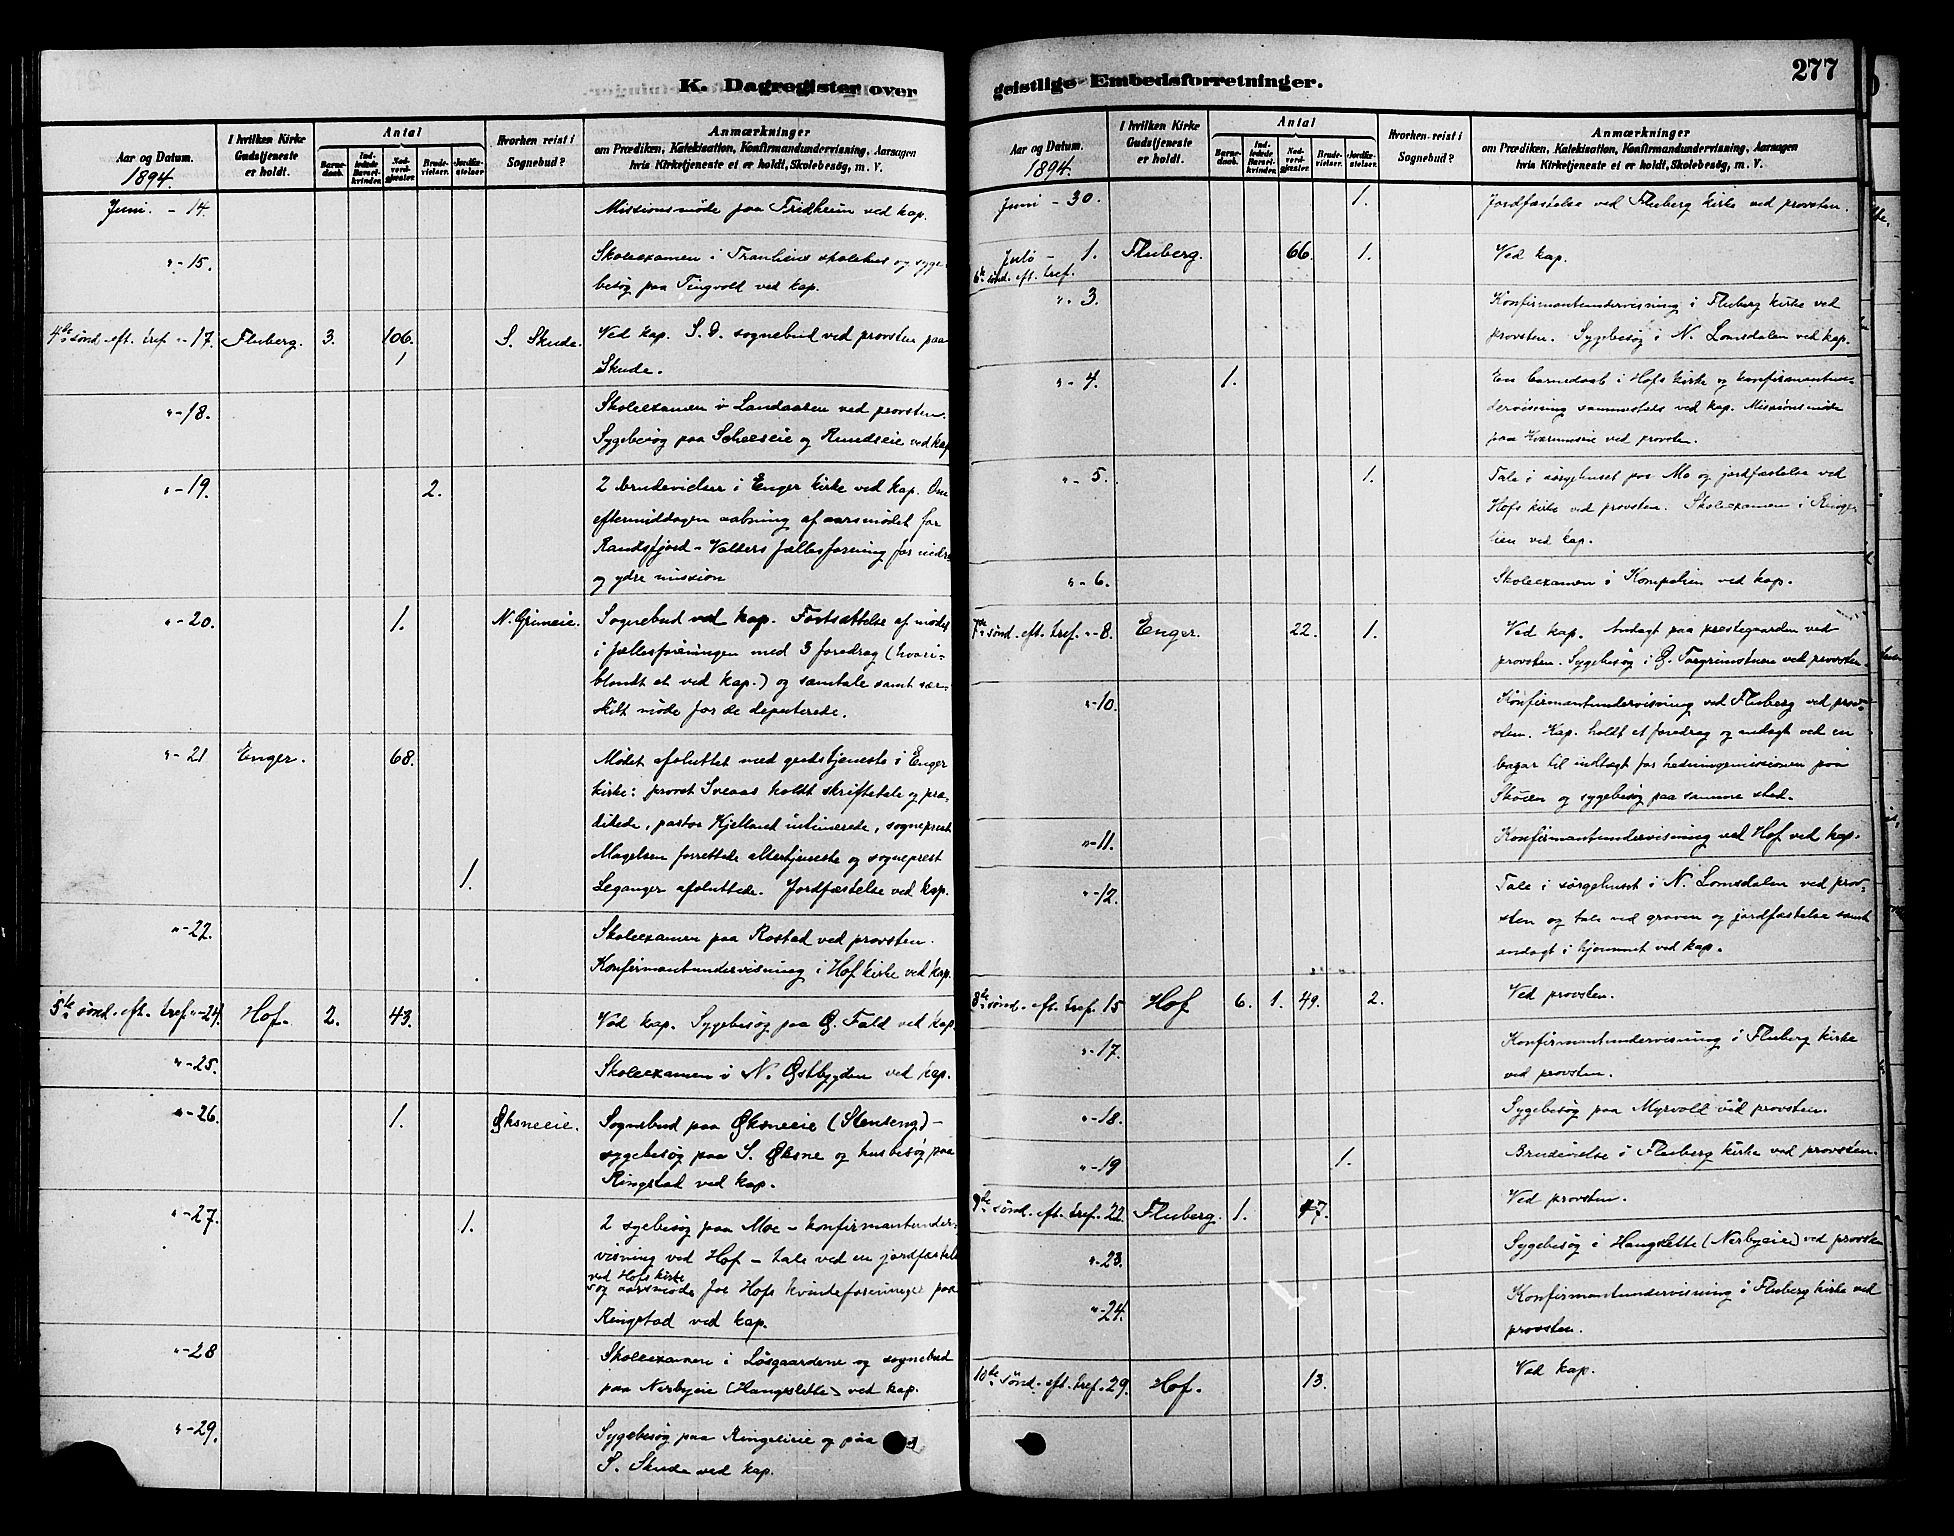 K. Dagregister over
Aar og Datum.
1894.
I hvilken Kirke
Gudstjeneste
er holdt.
Antal
Barne-
daab.
Ind-
ledede
Barsel-
kvinder.
Nad-
verd-
gjæster.
Brude-
vielser.
Jordfæ-
stelser.
Hvorhen reist i
Sognebud?
Anmærkninger
om Prædiken, Katekisation, Konfirmandundervisning, Aarsagen
hvis Kirketjeneste ei er holdt, Skolebesøg, m. V.
Juni. - 14.
Missionsmøde paa Fridheim ved kap.
"-15.
Skoleexamen i Tranliens skolehus og syge-
besøg paa Tingvold ved kap.
4de sønd. eft. tref. "-17. Fluberg. 3. 106. S. Skude. Ved kap. S. D. sognebud ved provsten paa
1 Skude.
"-18.
Skoleexamen i Landaasen ved provsten.
Sygebesøg paa Scheeseie og Rundseie ved kap
"-19. 2. 2 brudevielser i Enger kirke ved kap. Om
eftermiddagen aabning af aarsmødet for
Randsfjord-Valders fællesforening for indre
og ydre mission
"-20. 1. N. Grimeie. Sognebud ved kap. Fortsættelse af mødet
i fællesforeningen med 3 foredrag (hvori-
blandt et ved kap.) og samtale samt sær-
skilt møde for de deputerede.
"-21 Enger. 68. Mødet afsluttet med gudstjeneste i Enger
kirke: provst Sveaas holdt skriftetale og præ-
dikede, pastor Kjelland intimerede, sogneprest
Magelsen forrettede altertjeneste og sogneprest
1. Leganger afsluttede. Jordfæstelse ved kap.
"-22.
Skoleexamen paa Rostad ved provsten.
Konfirmantundervisning i Hof kirke ved kap.
5te sønd. eft. tref. "-24. Hof. 2. 43. Ved kap. Sygebesøg paa Ø. Fald ved kap.
"-25. Skoleexamen i N. Østbygden ved kap.
"-26. 1. Øksneeie. Sognebud paa Øksneeie (Stenseng) -
sygebesøg paa S. Øksne og husbesøg paa
Ringstad ved kap.
"-27. 1. 2 sygebesøg paa Moe - konfirmantunder-
visning ved Hof - tale ved en jordfæstelse
ved Hofs kirke
og aarsmøde for Hofs kvindeforeninger paa
Ringstad ved kap.
"-28
Skoleexamen i Løsgaardene og sognebud
paa Nerbyeie (Hangslette) ved kap.
"-29.
Sygebesøg paa Ringelieie og paa
S. Skude ved kap.
geistlige Embedsforretninger.
277
Aar og Datum.
1894.
I hvilken Kirke
Gudstjeneste
er holdt.
Antal
Barne-
daab.
Ind-
ledede
Barsel-
kvinder.
Nad-
verd-
gjæster.
Brude-
vielser.
Jordfæ-
stelser.
Hvorhen reist i
Sognebud?
Anmærkninger
om Prædiken, Katekisation, Konfirmandundervisning, Aarsagen
hvis Kirketjeneste ei er holdt, Skolebesøg, m. V.
Juni - 30. 1. Jordfæstelse ved Fluberg kirke ved provsten.
Juli - 1. Fluberg. 66. 1. Ved kap.
6te sønd. eft. tref.
"-3.
Konfirmantundervisning i Fluberg kirke ved
provsten. Sygebesøg i N. Lomsdalen ved kap.
"-4. 1. En barnedaab i Hofs kirke og konfirmantun-
dervisning sammesteds ved kap. Missionsmøde
paa Kværumseie ved provsten.
"-5. 1. Tale i sørgehuset paa Mo og jordfæstelse ved
Hofs kirke ved provsten. Skoleexamen i Ringe-
lien ved kap.
"-6. Skoleexamen i Kompelien ved kap.
7de sønd. eft. tref. "-8. Enger. 22. 1. Ved kap. Andagt paa prestegaarden ved
provsten. Sygebesøg i Ø. Torgrimstuen ved provsten.
"-10.
Konfirmantundervisning ved Fluberg ved prov-
sten. Kap. holdt et foredrag og andagt ved en
bazar til indtægt for hedningemissionen paa
Skøien og sygebesøg paa samme sted.
"-11. Konfirmantundervisning ved Hof ved kap.
"-12.
Tale i sørgehuset i N. Lomsdalen ved prov-
sten og tale ved graven og jordfæstelse samt
andagt i hjemmet ved kap.
8de sønd. eft. tref. 15 Hof 6. 1. 49. 2. Ved provsten.
"-17.
Konfirmantundervisning i Fluberg kirke
ved provsten.
"-18. Sygebesøg paa Myrvold ved provsten.
"-19 1. Brudevielse i Fluberg kirke ved provsten.
9de sønd. eft. tref. 22. Fluberg. 1. 47. Ved provsten.
"-23. Sygebesøg i Hangslette (Nerbyeie) ved provsten
"-24.
Konfirmantundervisning i Fluberg kirke ved
provsten.
10de sønd. eft. tref. 29. Hof. 13. Ved kap.